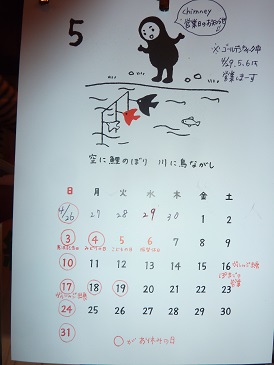 5
chimney
営業日のお知らせ
※ゴールデンウィーク中
4/29.5.6は
営業しまーす
空に鯉のぼり 川に鳥ながし
日 月 火 水 木 金 土
4/26 27 28 29 30 1 2
3 4 5 6 7 8 9
憲法記念日 みどりの日 こどもの日 振替休日
10 11 12 13 14 15 16
17 18 19 20 21 22 23
24 25 26 27 28 29 30
31
○がお休みの日